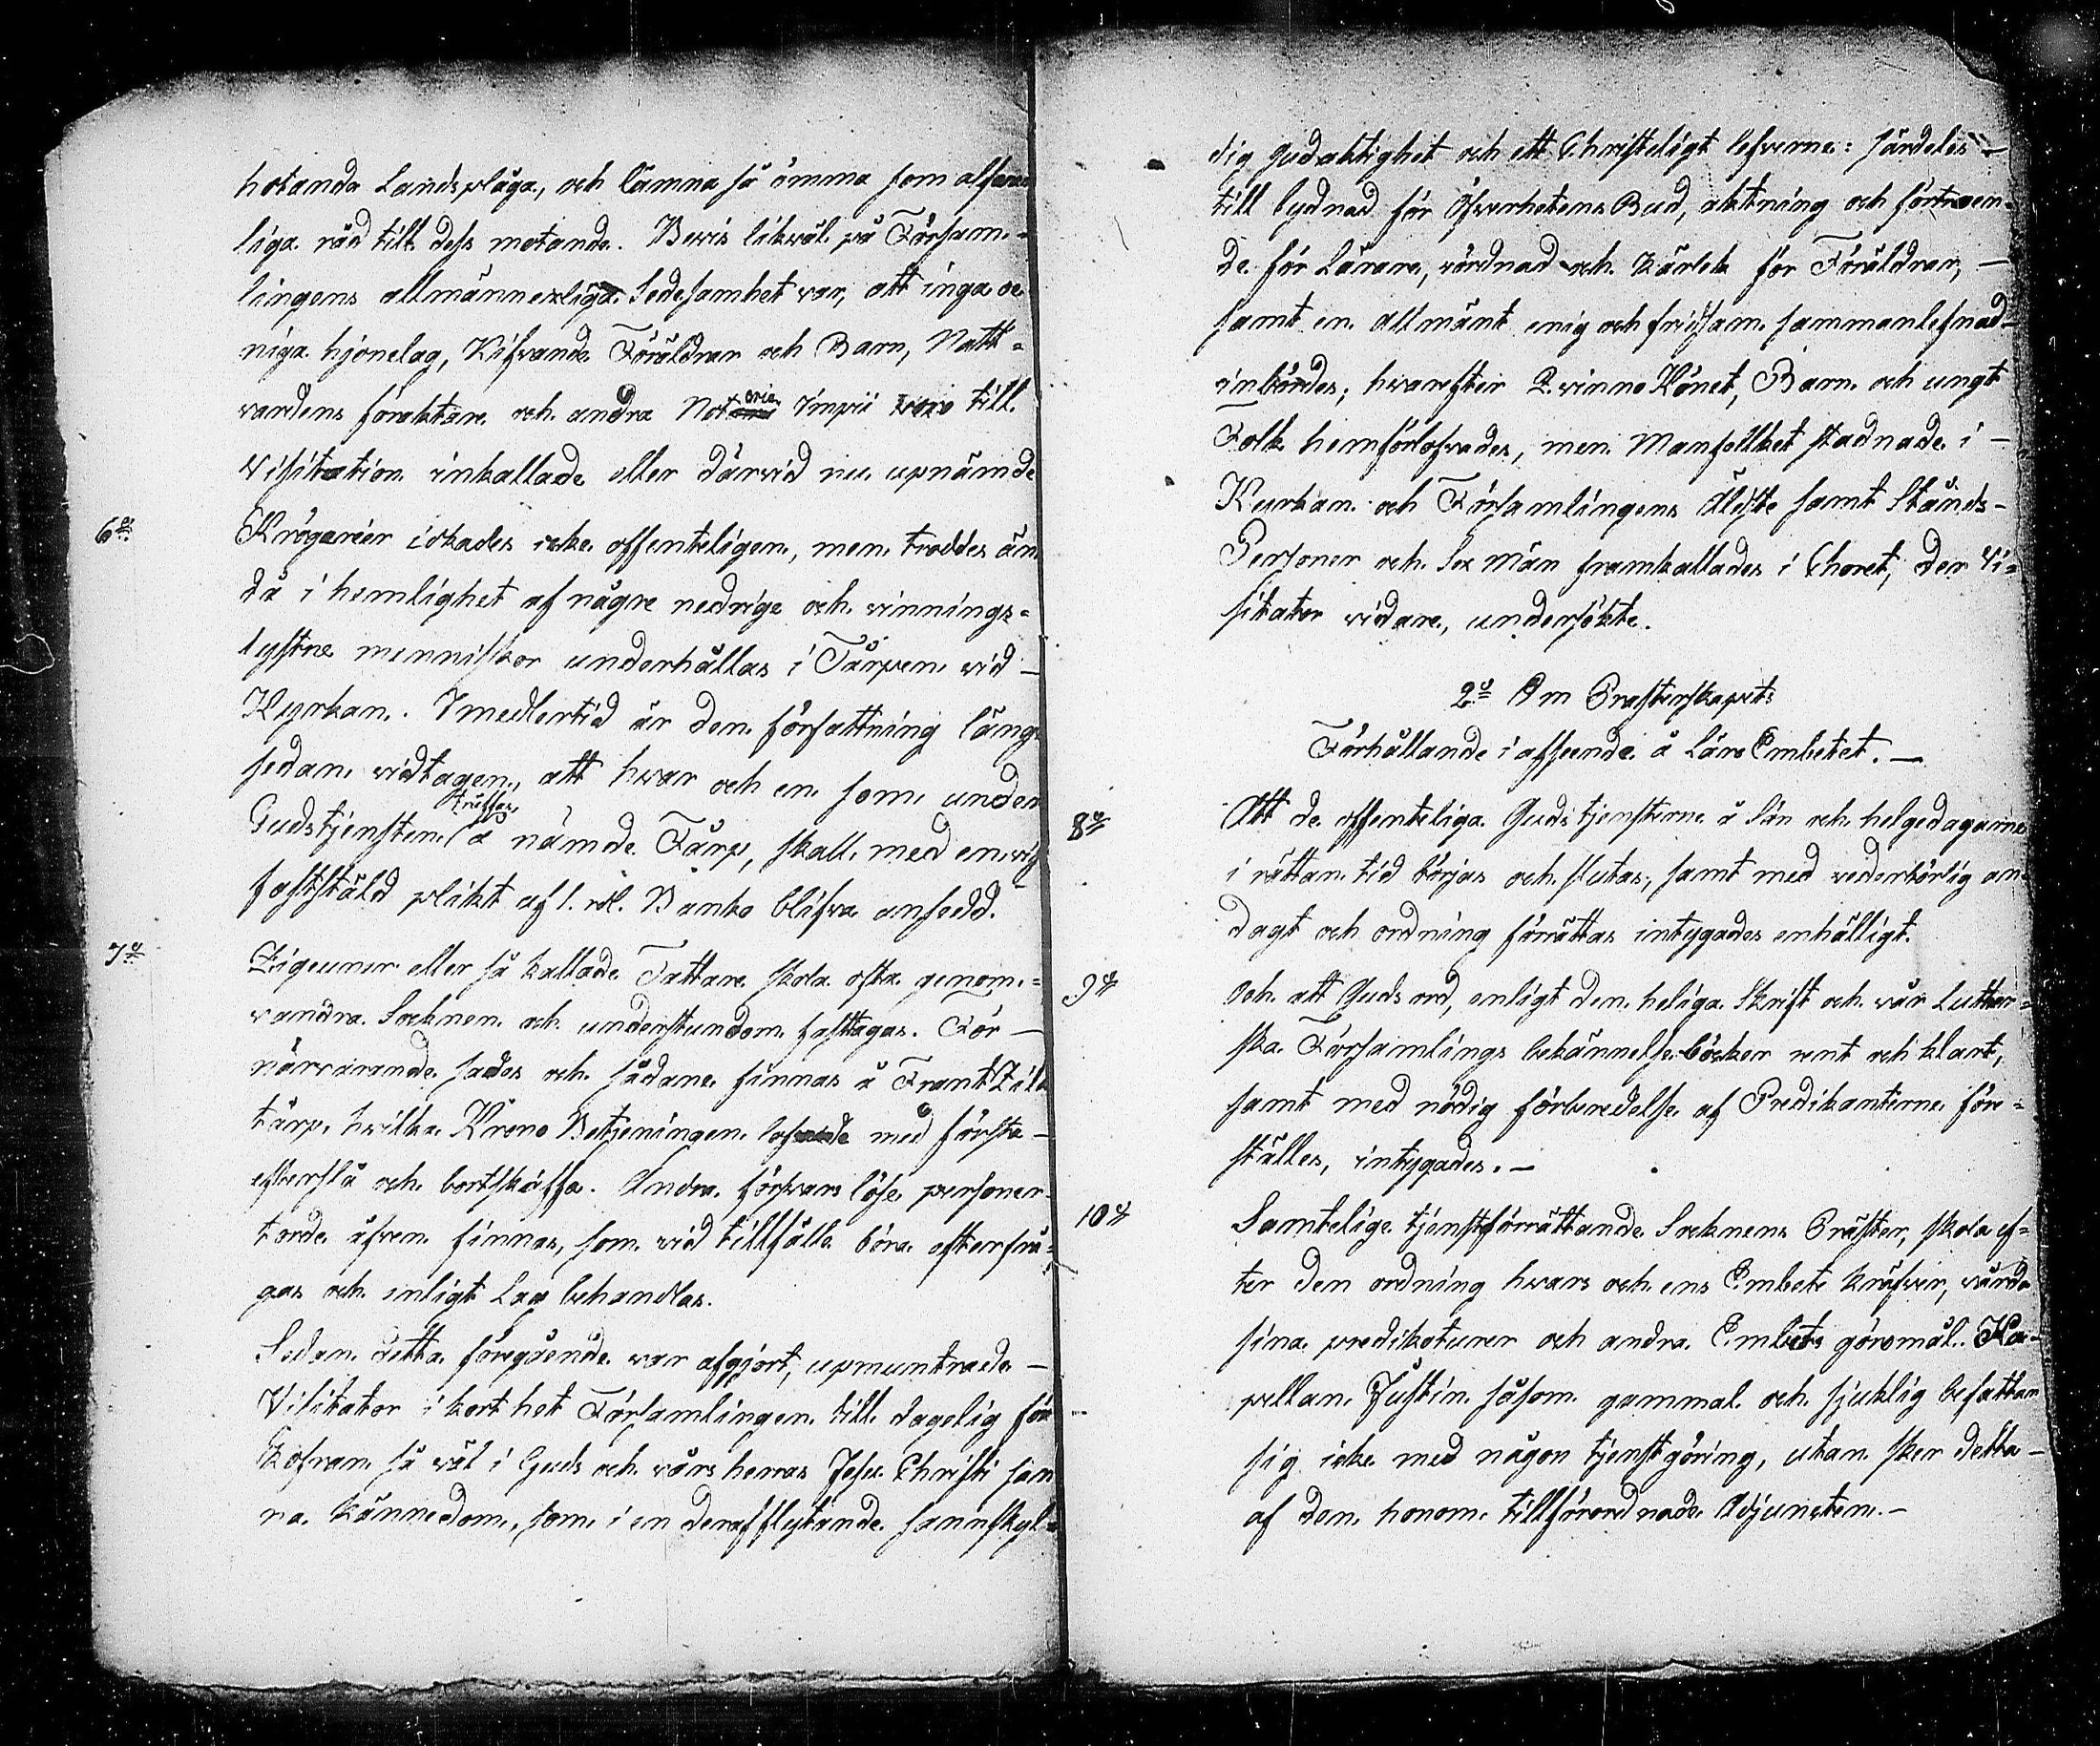 hotanda Landsplåga, och lämna så ömma som alfvar
liga råd till dess motande. Bevis likväl på Försam-
lingens allmännerliga Sedesamhet var, att inga oe
niga hjonelag, Kifvande Föräldrar och Barn, Natt-
vardens föraktare och andra Notorie Impii voro till
Visitation inkallade eller därvid nu upnämde
6o Krögerier idkades icke offenteligen, men troddes än
då i hemlighet af någre nedrige och vinnings-
lystne menniskor underhållas i Tärpen vid -
Kyrkan. Imedlertid är den författning längs
sedan vidtagen, att hvar och en som under
träffas
Gudstjensten (å nämde Tärp, skall med en viss
fastställd plikt af 1. rdl. Banko blifva ansedd.
7o Zigeuner eller så kallade Tattare skola ofta genom-
vandra Socknen och understundom fasttagas. För -
närvarande sades och sådane finnas å Frant Zila
tärp, hvilka Krono Betjeningen lofvade med första -
efterslå och bortskaffa. Andra försvarslöse personer
torde äfven finnas, som vid tillfälle böra efterfrå-
gas och enligt Lag behandlas.
Sedan detta föregående var afgjort, upmuntrade -
Visitator i korthet Församlingen till dagelig för
kofran så väl i Guds och vårs herras Jesu Christi san
na kännedom, som i en deraf flytande sannskyl-
dig gudaktighet och ett Christeligt lefverne: särdeles -
till lydnad för Öfverhetens Bud, aktning och förtroen-
de för Lärare, vördnad och Kärlek för Föräldrar, -
samt en allmänt enig och fridsam sammanlefnad -
inbördes; hvarefter Qvinno Könet, Barn och ungt
Folk hemförlofvades, men Manfolket stadnade i -
Kyrkan och Församlingens Äldste samt Stånds-
Personer och Sex Män framkallades i Choret, der Vi-
sitator vidare, undersökte.
2o Om Prästerskapets
Förhållande i afseende å Läro Embetet. -
8o Att de offenteliga Gudstjensterne å Sön och helgedagarne
i rättan tid börjas och slutas, samt med vederbörlig an-
dagt och ordning förrättas intygades enhälligt.
9o Och att Guds ord, enligt den heliga Skrift och vår Luther-
ska Församlings bekännelse böcker rent och klart,
samt med nödig förberedelse af Predikanterne före-
ställes, intygades. -
10o Samtelige tjenstförrättande Socknens Präster, skola ef-
ter den ordning hvars och ens Embete kräfver, vårda
sina predikoturer och andra Embets göromål. Ka-
pellan Justin såsom gammal och sjuklig befattar
sig icke med någon tjenstgöring, utan sker detta -
af den honom tillförordnade Adjuncten. -